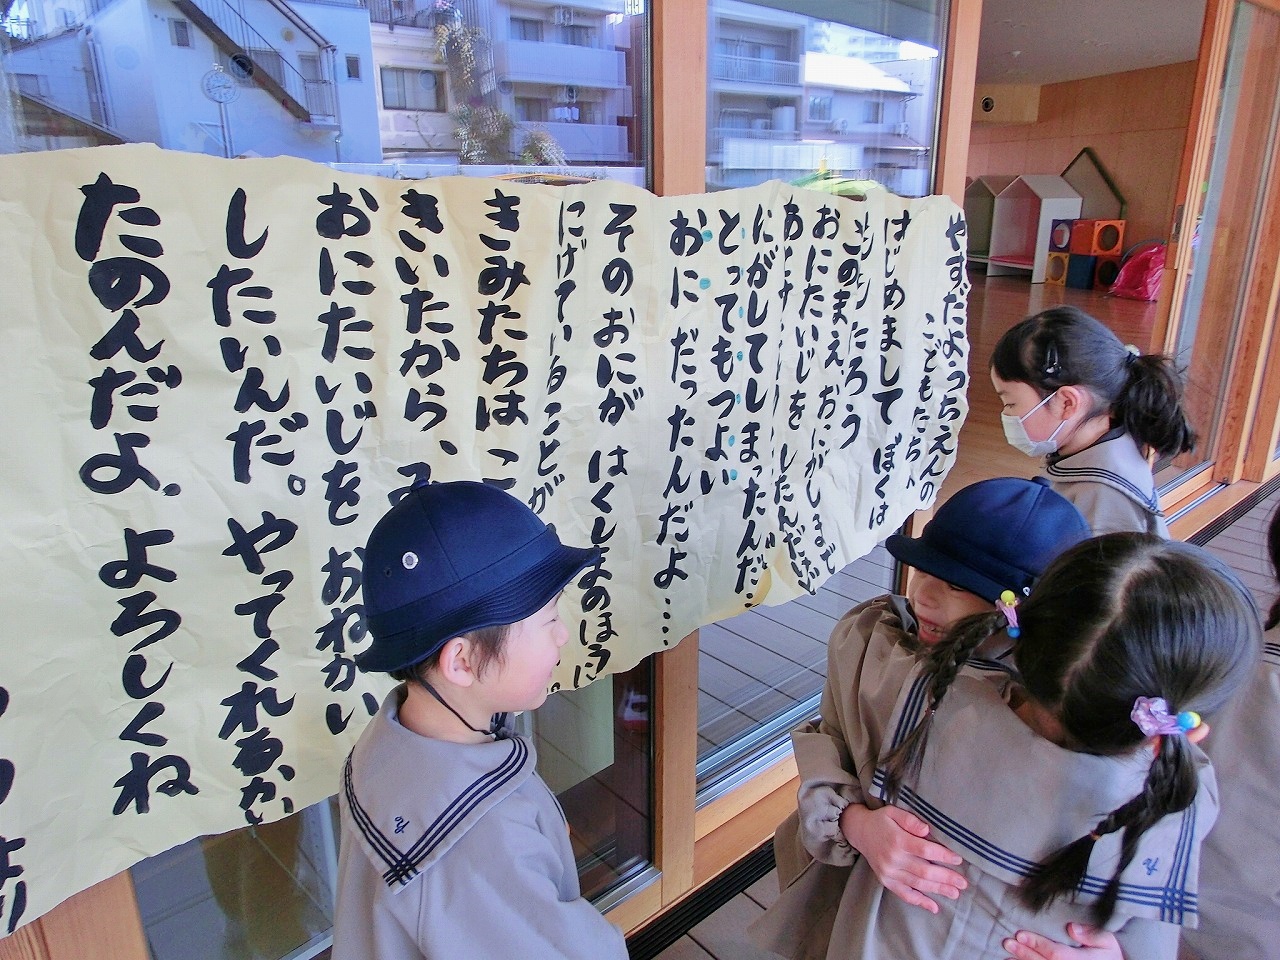 やすだようちえんの
こどもたちへ
はじめまして ぼくは
ももたろう
このまえ、おにがしまで
おにたいじを したんだけど
にがしてしまったんだ…
とってもつよい
おに だったんだよ……
そのおにが はくしまのほうに
にげていることが
きみたちは こ
きいたから、み
おにたいじを おねがい
したいんだ。やってくれるかい
たのんだよ、よろしくね
より